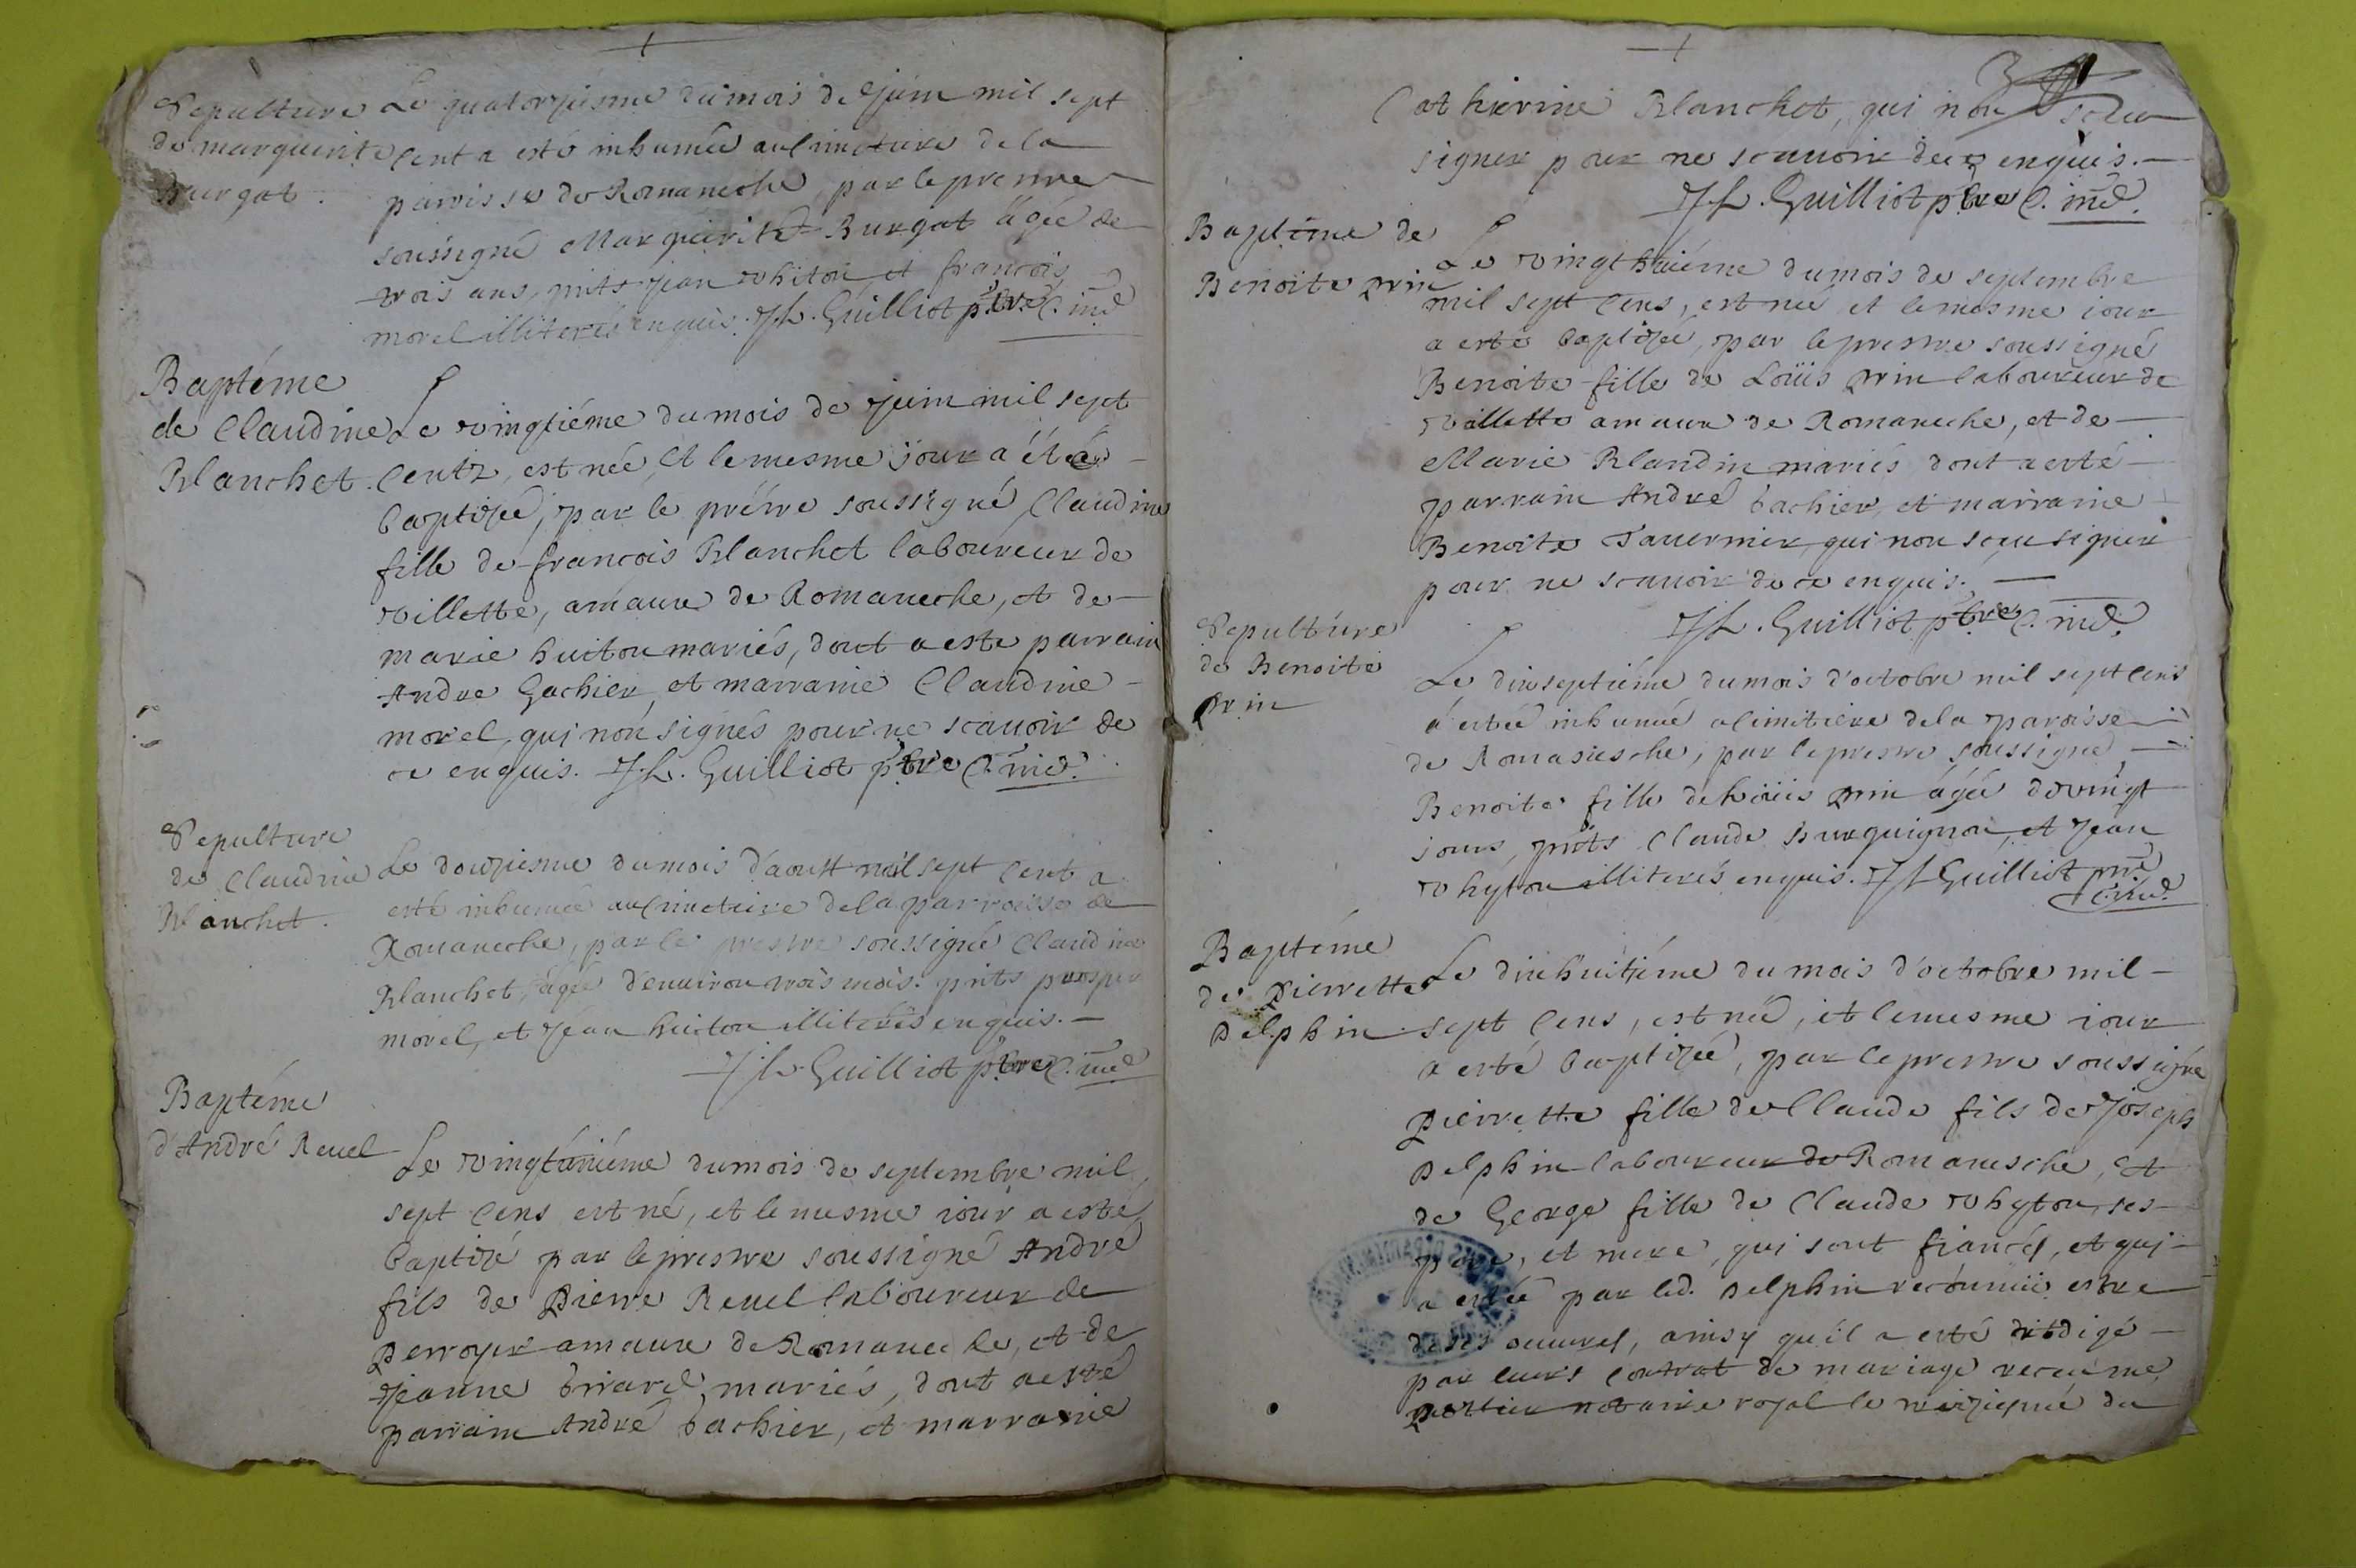 Sepulture
de marguerite
Burgat.
Le quatorziesme du mois de Juin mil sept
cent a esté inhumée au cimetiere de la
parroisse de Romanesche, par le prestre
soussigné Marguerite Burgat âgée de
trois ans, pnts Jean vhiton et françois
morel illiterés enquis. J L. Guilliot ptre C. ind
Baptéme
de Claudine
Blanchet.
Le vingtiéme du mois de Juin mil sept
centz, est née, et le mesme jour a été
baptizée, par le prétre soussigné, Claudine
fille de françois Blanchet laboureur de
villette, amaure de Romaneche, et de
marie huiton mariés, dont a esté parrain
Andre Gachier, et marraine Claudine
morel, qui non signés pour ne scauoir de
ce enquis. J L. Guilliot ptre C. ind.
Sepulture
de Claudine
Blanchet.
Le douziesme du mois d'aoust mil sept cent a
esté inhumée au cimetiere de la parroisse de
Romaneche, par le prestre soussigné Claudine
Blanchet, âgée d'enuiron trois mois. pnts prosper
morel, et Jean huiton illiterés enquis.
J L. Guilliot ptre C. ind
Baptéme
d'André Reuel
Le vingtuniéme du mois de septembre mil
sept cens est né, et le mesme iour a esté
baptizé par le prestre soussigné André
fils de Pierre Reuel laboureur de
amaure de Romaneche, et de
Jeanne mariés, dont a esté
parrain André Gachier, et marraine
Catherine Blanchet, qui non sceu
signer pour ne scauoir de ce enquis.
J L. Guilliot ptre C. ind.
Baptéme de
Benoite prin
Le vingthuiéme du mois de septembre
mil sept cens, est née et le mesme iour
a esté baptizée, par le prestre soussigné
Benoite fille de Loüis prin laboureur de
villette amaure de Romaneche, et de
Marie Blandin mariés dont a esté
parrain André Gachier, et marraine
Benoite Tauernier, qui non sceu signer
pour ne scauoir de ce enquis.
J L. Guilliot ptre C. ind.
Sepulture
de Benoite
prin
Le dixseptiéme du mois d'octobre mil sept cens
a estée inhumée a cimitiere de la paroisse
de Romanesche, par le prestre soussigné
Benoite fille de Loüis prin âgée de vingt
jours, pnts Claude Burguignon, et Jean
vhyton illiterés enquis. J L Guilliot ptre
C. ind.
Baptéme
de Pierrette
Delphin
Le dixhuitiéme du mois d'octobre mil
sept cens, est née, et le mesme iour
a esté baptizée, par le prestre soussigné
Pierrette fille de Claude fils de Joseph
Delphin laboureur de Romanesche, et
de George fille de Claude vhyton, ses
pere, et mere, qui sont fiancés, et qui
a estée par led. Delphin reconnüe estre
de ses oeuures, ainsy qu'il a esté rédigé
par leurs contrat de mariage receu me
notaire royal le du